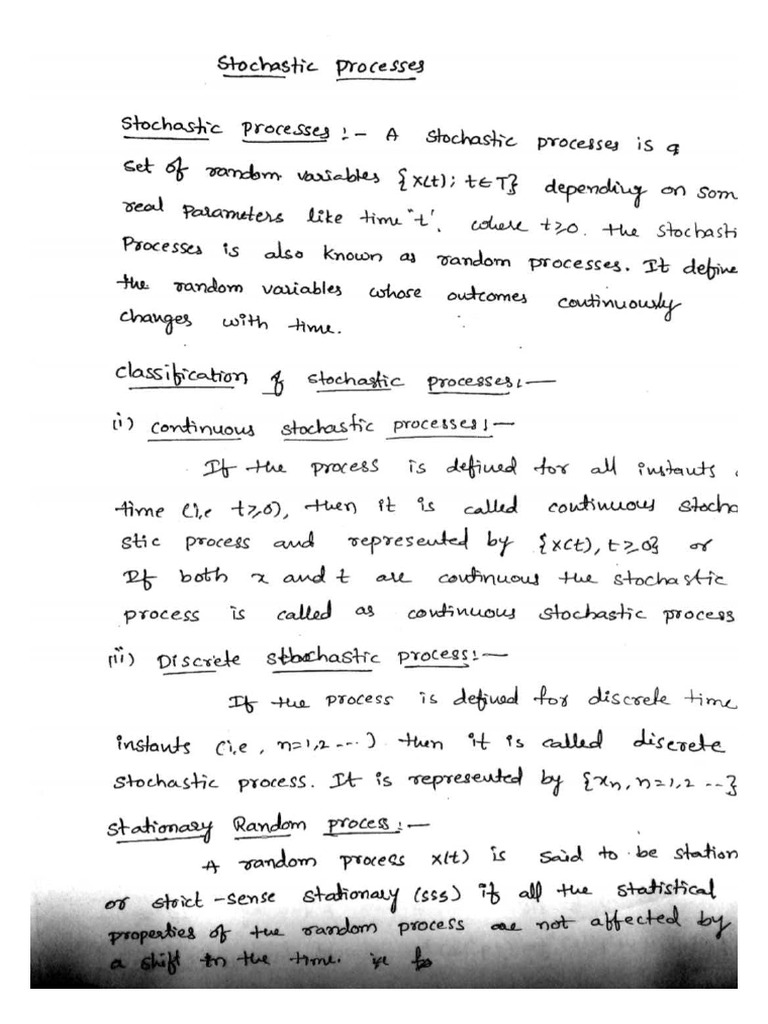 Stochastic processes
Stochastic processes :- A stochastic processes is a
set of random variables {X(t); t∈T} depending on som
real parameters like time "t'. where t≥0. the stochasti
Processes is also known as random processes. It define
the random variables whose outcomes continuously
changes with time.
Classification of stochastic processes:-
(i) continuous stochastic processes:-
If the process is defined for all instants
time (i,e t≥0), then it is called continuous stocha
stic process and represented by {X(t), t≥0} or
If both x and t are continuous the stochastic
process is called as continuous stochastic process
(ii) Discrete stochastic process:-
If the process is defined for discrete time
instants (i,e, n=1,2 ---) then it is called discrete
stochastic process. It is represented by {Xn, n=1,2 --}
Stationary Random process:-
A random process X(t) is said to be station
or strict-sense stationary (SSS) if all the statistical
properties of the random process are not affected by
a shift in the time.